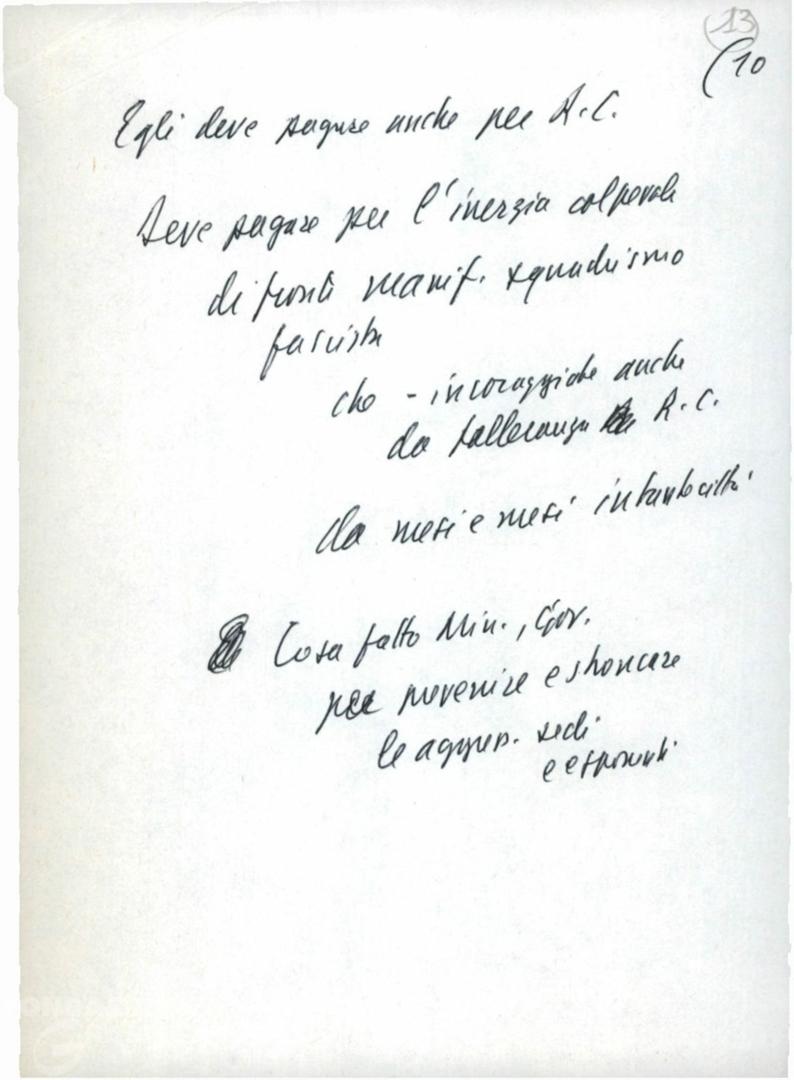 13
(10
Egli deve pagare anche per R.C.
Deve pagare per l'inerzia colpevole
di fronte manif. squadrismo
fascista
che - incoraggiate anche
da tolleranza R.C.
da mesi e mesi in tante città
Cosa fatto Min., Gov.
per prevenire e stroncare
le aggres. sedi
e esponenti